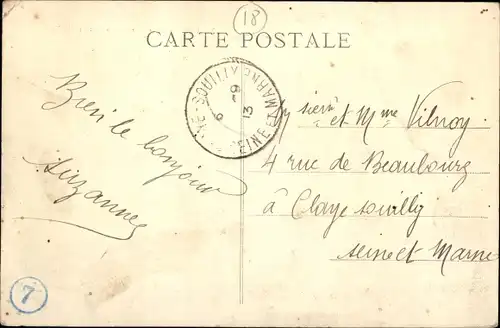 18
CARTE POSTALE
Bien le bonjour
Suzanne
SEINE ET MARNE
6 - 9
13
et Mme Vilnoy
4 rue de Beaubourg
à Claye souilly
seine et Marne
7